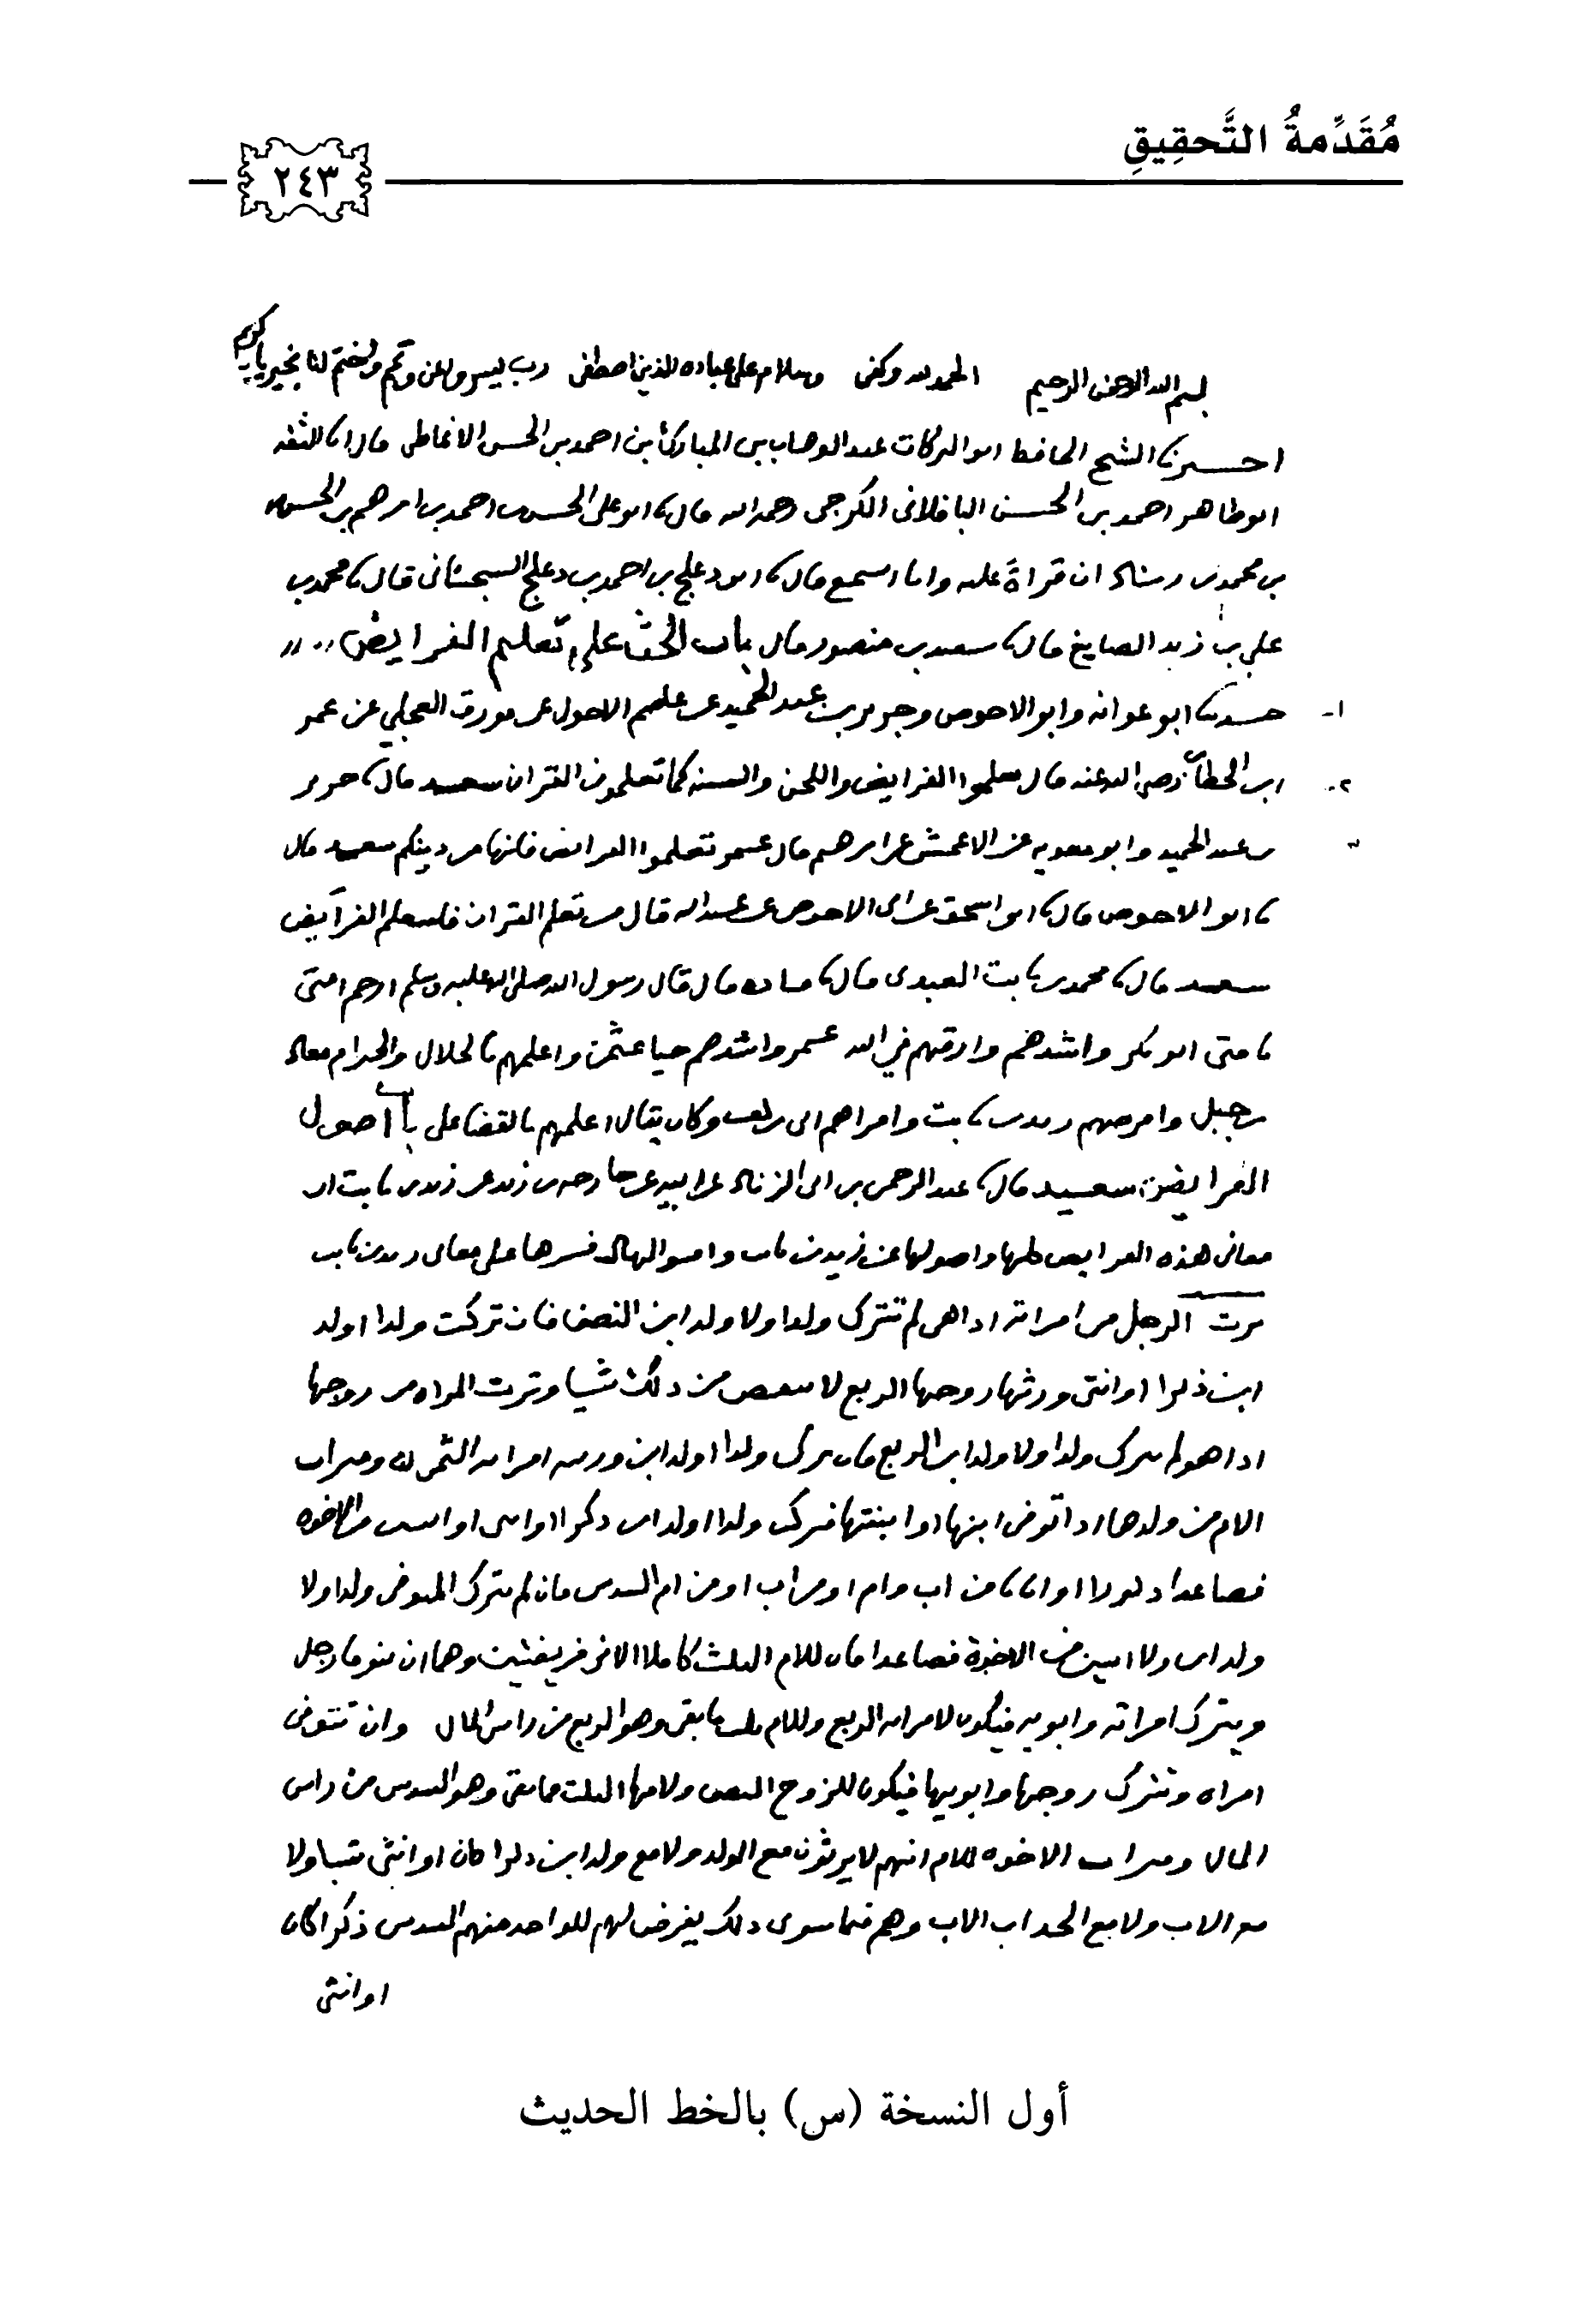 مُقَدِّمةُ التَّحقِيقِ
٢٤٣
بسم الله الرحمن الرحيم الحمد لله وكفى وسلام على عباده الذين اصطفى رب يسر واعن وتمم واختم لنا بخير يا كريم
اخبرنا الشيخ الحافظ ابو البركات عبد الوهاب بن المبارك بن احمد بن الحسن الانماطي قال انا الثقه
ابو طاهر احمد بن الحسن الباقلانى الكرجى رحمه الله قال انا ابو على الحسن بن احمد بن ابرهيم بن الحسن
بن محمد بن شاذان قراةً عليه وانا اسمع قال انا دعلج بن احمد بن دعلج السجستانى قال نا محمد بن
علي بن زيد الصايغ قال نا سعيد بن منصور قال باب الحث على تعليم الفرايض
١- حدثنا ابو عوانه وابو الاحوص وجرير بن عبد الحميد عن عاصم الاحول عن مورق العجلي عن عمر
٢- ابن الخطاب رضى الله عنه قال تعلموا الفرايض واللحن والسنه كما تعلمون القران سعيد قال نا جرير
٣ بن عبد الحميد وابو معويه عن الاعمش عن ابرهيم قال عمر تعلموا الفرايض فانها من دينكم سعيد قال
نا ابو الاحوص قال نا ابو اسحق عن ابى الاحوص عن عبد الله قال من تعلم القران فليتعلم الفرايض
سعيد قال نا محمد بن ثابت العبدى قال نا قتاده قال قال رسول الله صلى الله عليه وسلم ارحم امتى
بامتى ابو بكر واشدهم وارقهم في الله عمر واشدهم حيا عثمن واعلمهم بالحلال والحرام معاذ
بن جبل وافرضهم زيد بن ثابت واقراهم ابى بن كعب وكان يقال اعلمهم بالقضا على باب اصول
الفرايض سعيد قال نا عبد الرحمن بن ابى الزناد عن ابيه عن خارجه بن زيد عن زيد بن ثابت ان
معانى هذه الفرايض كلها واصولها عن زيد بن ثابت وابو الزناد فسرها على معانى زيد بن ثابت
يرث الرجل من امراته اذا هى لم تترك ولدا ولا ولد ابن النصف فان تركت ولدا او ولد
ابن ذكرا او انثى ورثها زوجها الربع لا ينقص من ذلك شيا وترث المراه من زوجها
اذا هو لم يترك ولدا ولا ولد ابن الربع فان ترك ولدا او ولد ابن ورثته امراته الثمن وميراث
الام من ولدها اذا توفى ابنها او ابنتها فترك ولدا او ولد ابن ذكرا او انثى او اثنين من الاخوه
فصاعدا ذكورا او اناثا من اب وام او من اب او من ام السدس فان لم يترك المتوفى ولدا ولا
ولد ابن ولا اثنين من الاخوة فصاعدا فان للام الثلث كاملا الا فى فريضتين وهما ان يتوفا رجل
ويترك امراته وابويه فيكون لامراته الربع وللام ثلث ما بقى وهو الربع من راس المال وان تتوفى
امراه وتترك زوجها وابويها فيكون للزوج النصف ولامها الثلث مما بقى وهو السدس من راس
المال وميراث الاخوه للام انهم لا يرثون مع الولد ولا مع ولد ابن ذكرا كان او انثى شيا ولا
مع الاب ولا مع الجد اب الاب وهم فيما سوى ذلك يفرض لهم للواحد منهم السدس ذكرا كان
او انثى
أول النسخة (س) بالخط الحديث